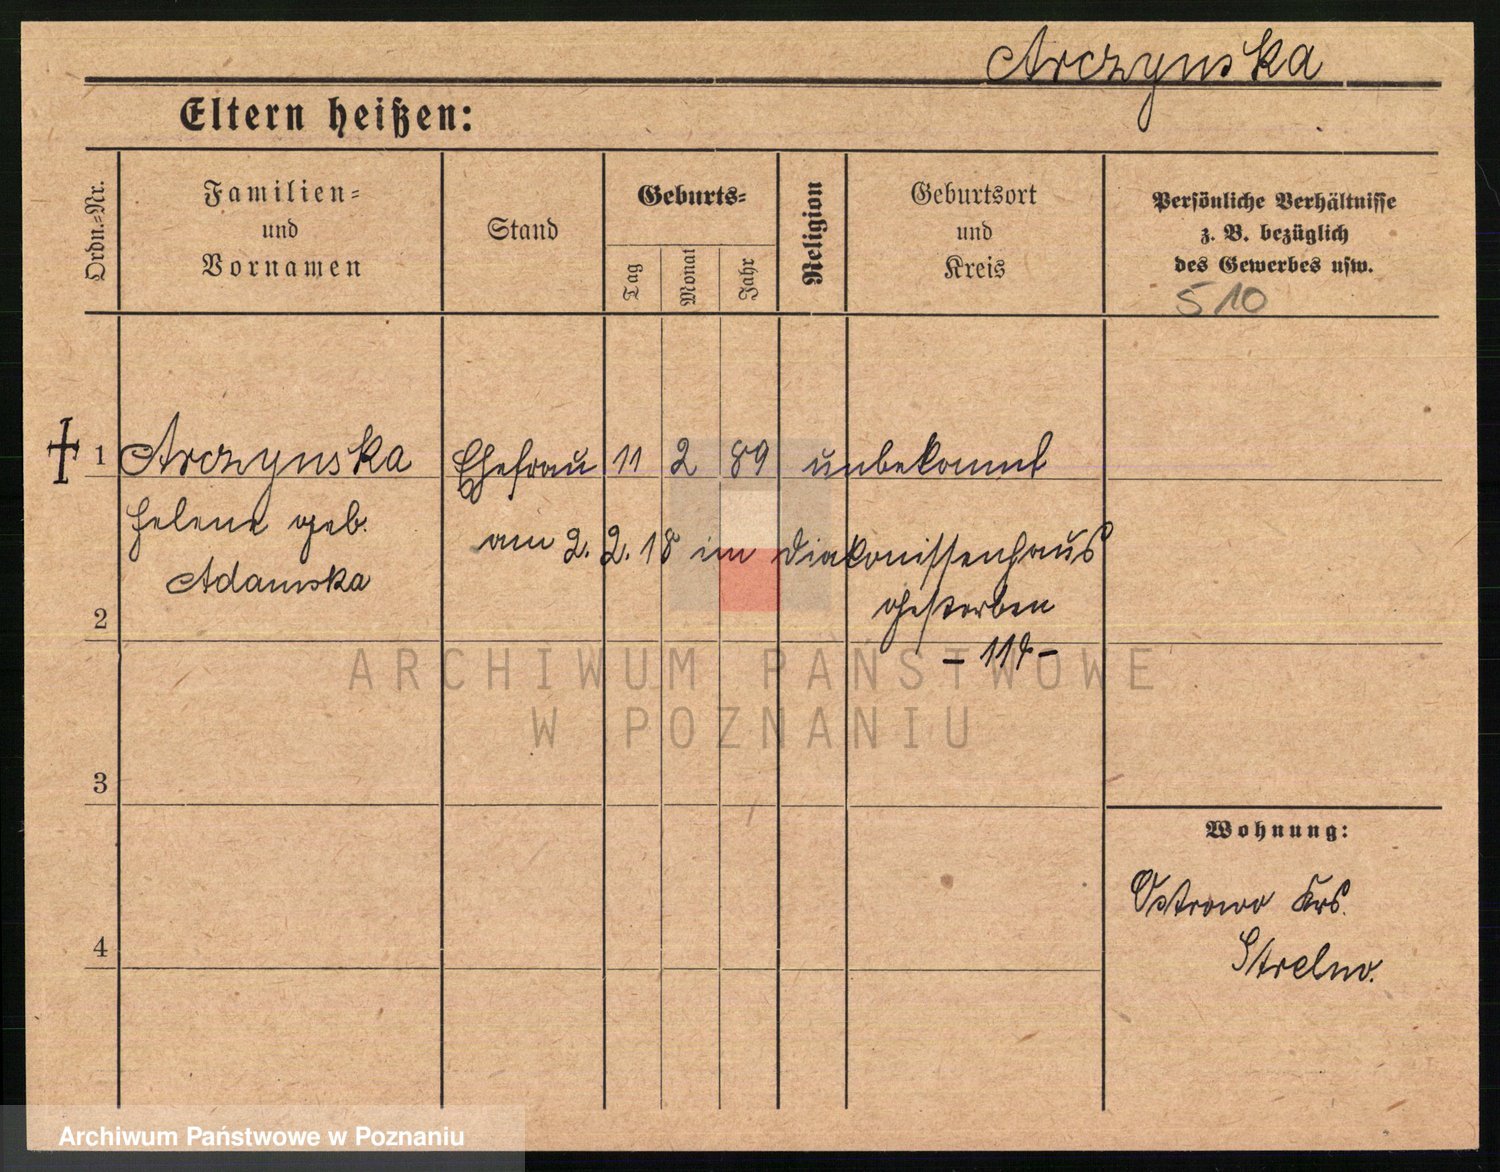 Arczynska
Eltern heißen:
Ordn.-Nr.
Familien-
und
Vornamen
Stand
Geburts-
Tag
Monat
Jahr
Religion
Geburtsort
und
Kreis
Persönliche Verhältnisse
z. B. bezüglich
des Gewerbes usw.
510
1 Arczynska Ehefrau 11 2 89 unbekannt
Helene geb.
Adamska
am 2. 2. 18 im Diakonissenhaus
gestorben
2
ARCHIWUM PAŃSTWOWE
W POZNANIU
3
Wohnung:
Ostrowo Krs.
Strelno.
4
Archiwum Państwowe w Poznaniu